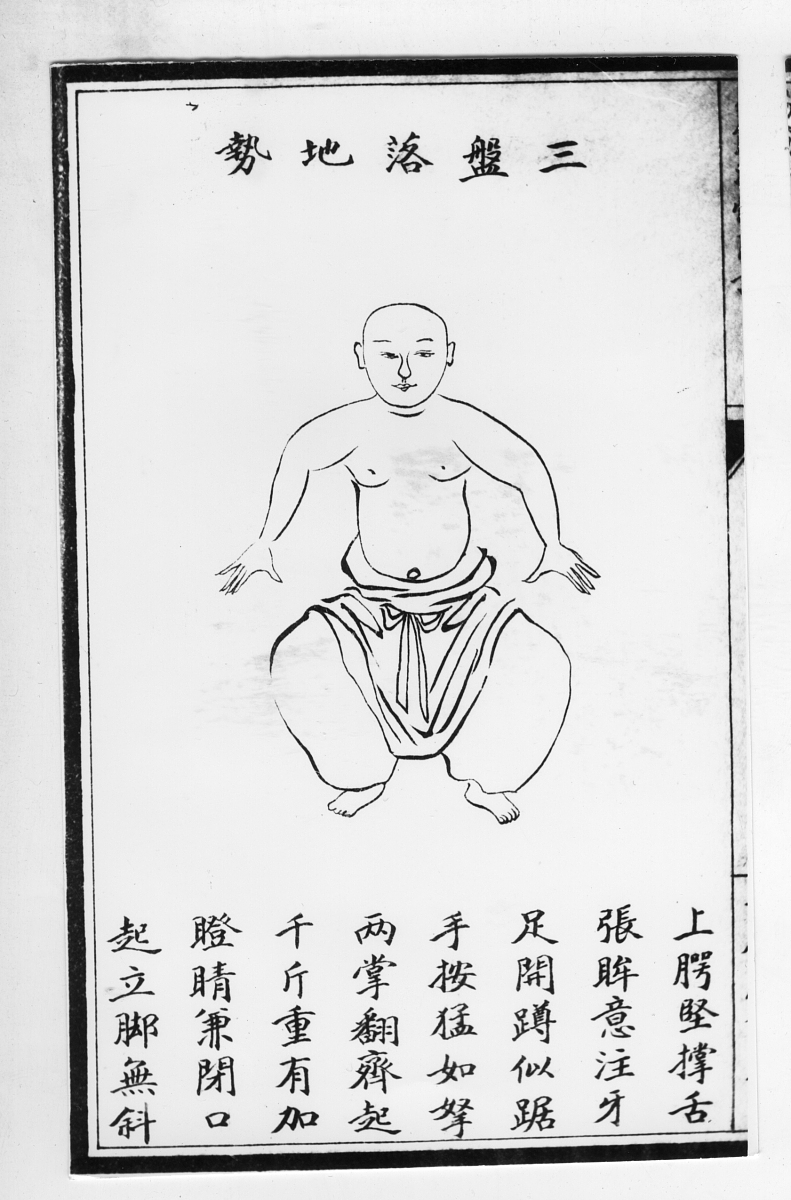 三盤落地勢
上腭堅撐舌
張眸意注牙
足開蹲似踞
手按猛如拏
两掌翻齊起
千斤重有加
瞪睛兼閉口
起立脚無斜